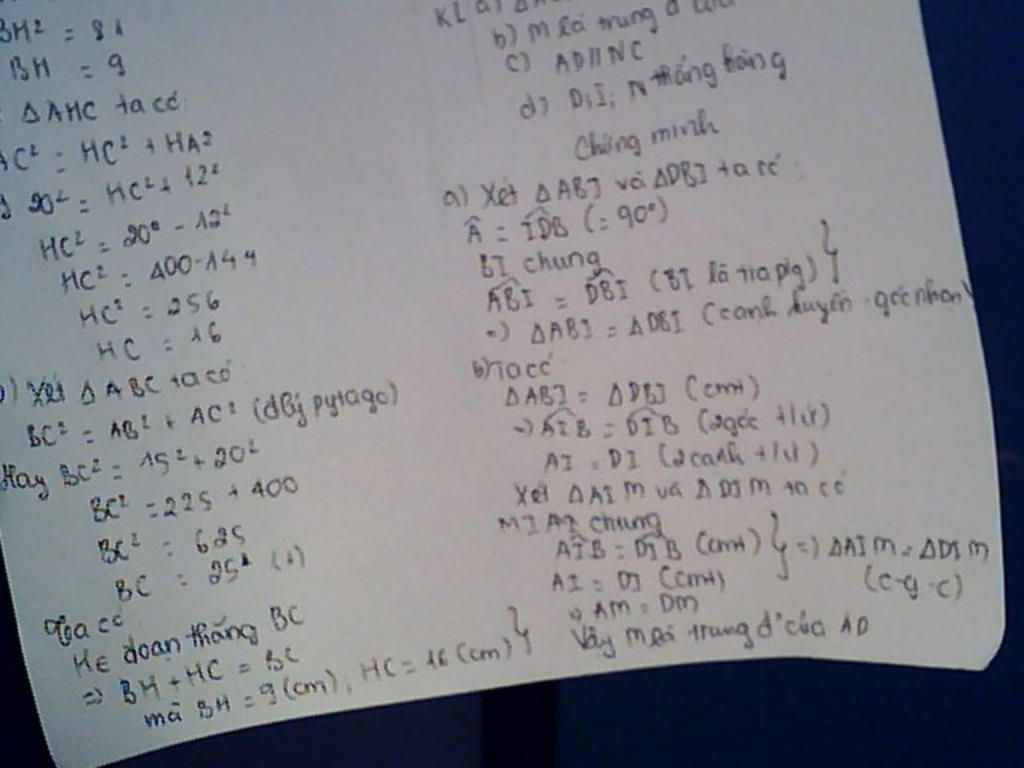 BH² = 81
BH = 9
ΔAHC ta có
AC² = HC² + HA²
20² = HC² + 12²
HC² = 20² - 12²
HC² = 400-144
HC² = 256
HC = 16
b) Xét ΔABC ta có
BC² = AB² + AC² (đlý pytago)
Hay BC² = 15² + 20²
BC² = 225 + 400
BC² = 625
BC = 25 (1)
Ta có
H∈ đoạn thẳng BC
=> BH + HC = BC
mà BH = 9 (cm), HC = 16 (cm) }
KL a)
b) M là trung đ của
c) AD//NC
d) D, I, N thẳng hàng
Chứng minh
a) Xét ΔABI và ΔDBI ta có
Â = IDB (= 90°)
BI chung
ABI = DBI (BI là tia pg) }
=> ΔABI = ΔDBI (cạnh huyền - góc nhọn)
b) Ta có
ΔABI = ΔDBI (cmt)
=> AIB = DIB (2góc t/ứ)
AI = DI (2cạnh t/ứ)
Xét ΔAIM và ΔDIM ta có
MI chung
AIB = DIB (cmt) } => ΔAIM = ΔDIM
AI = DI (cmt) (c-g-c)
=> AM = DM
Vậy M là trung đ' của AD